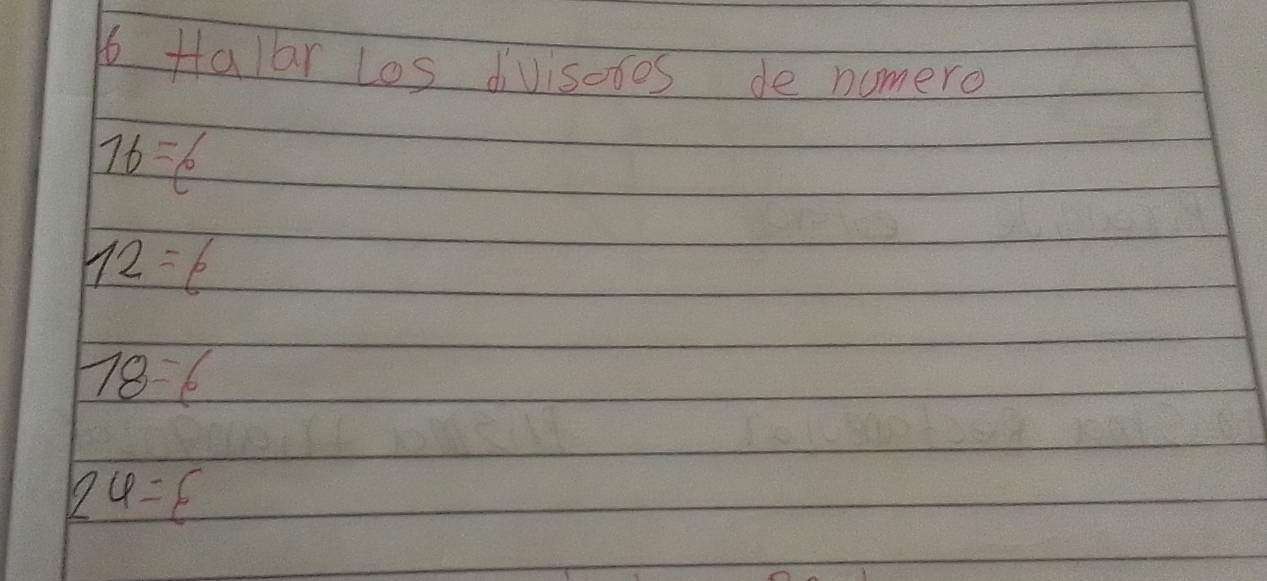 6 Hallar Los divisores de numero
16 = {
12 = {
18 = {
24 = {